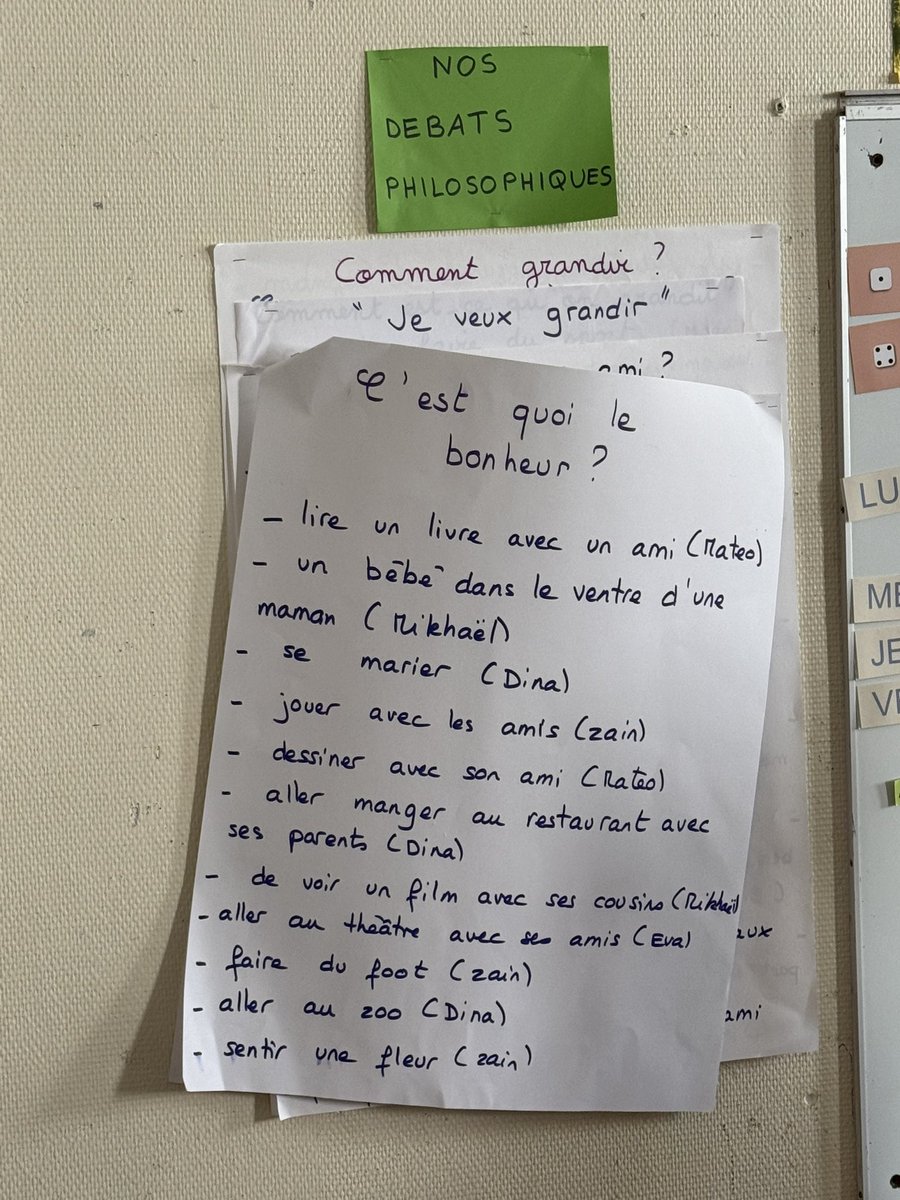 NOS
DEBATS
PHILOSOPHIQUES
Comment grandir ?
"Je veux grandir"
ami ?
C'est quoi le
bonheur ?
- lire un livre avec un ami (Mateo)
- un bébé dans le ventre d'une
maman (Mikhaël)
- se marier (Dina)
- jouer avec les amis (zain)
- dessiner avec son ami (Mateo)
- aller manger au restaurant avec
ses parents (Dina)
- de voir un film avec ses cousins (Mikhaël)
- aller au théâtre avec ses amis (Eva)
- faire du foot (zain)
- aller au zoo (Dina)
- sentir une fleur (zain)
ami
LU
ME
JE
VE